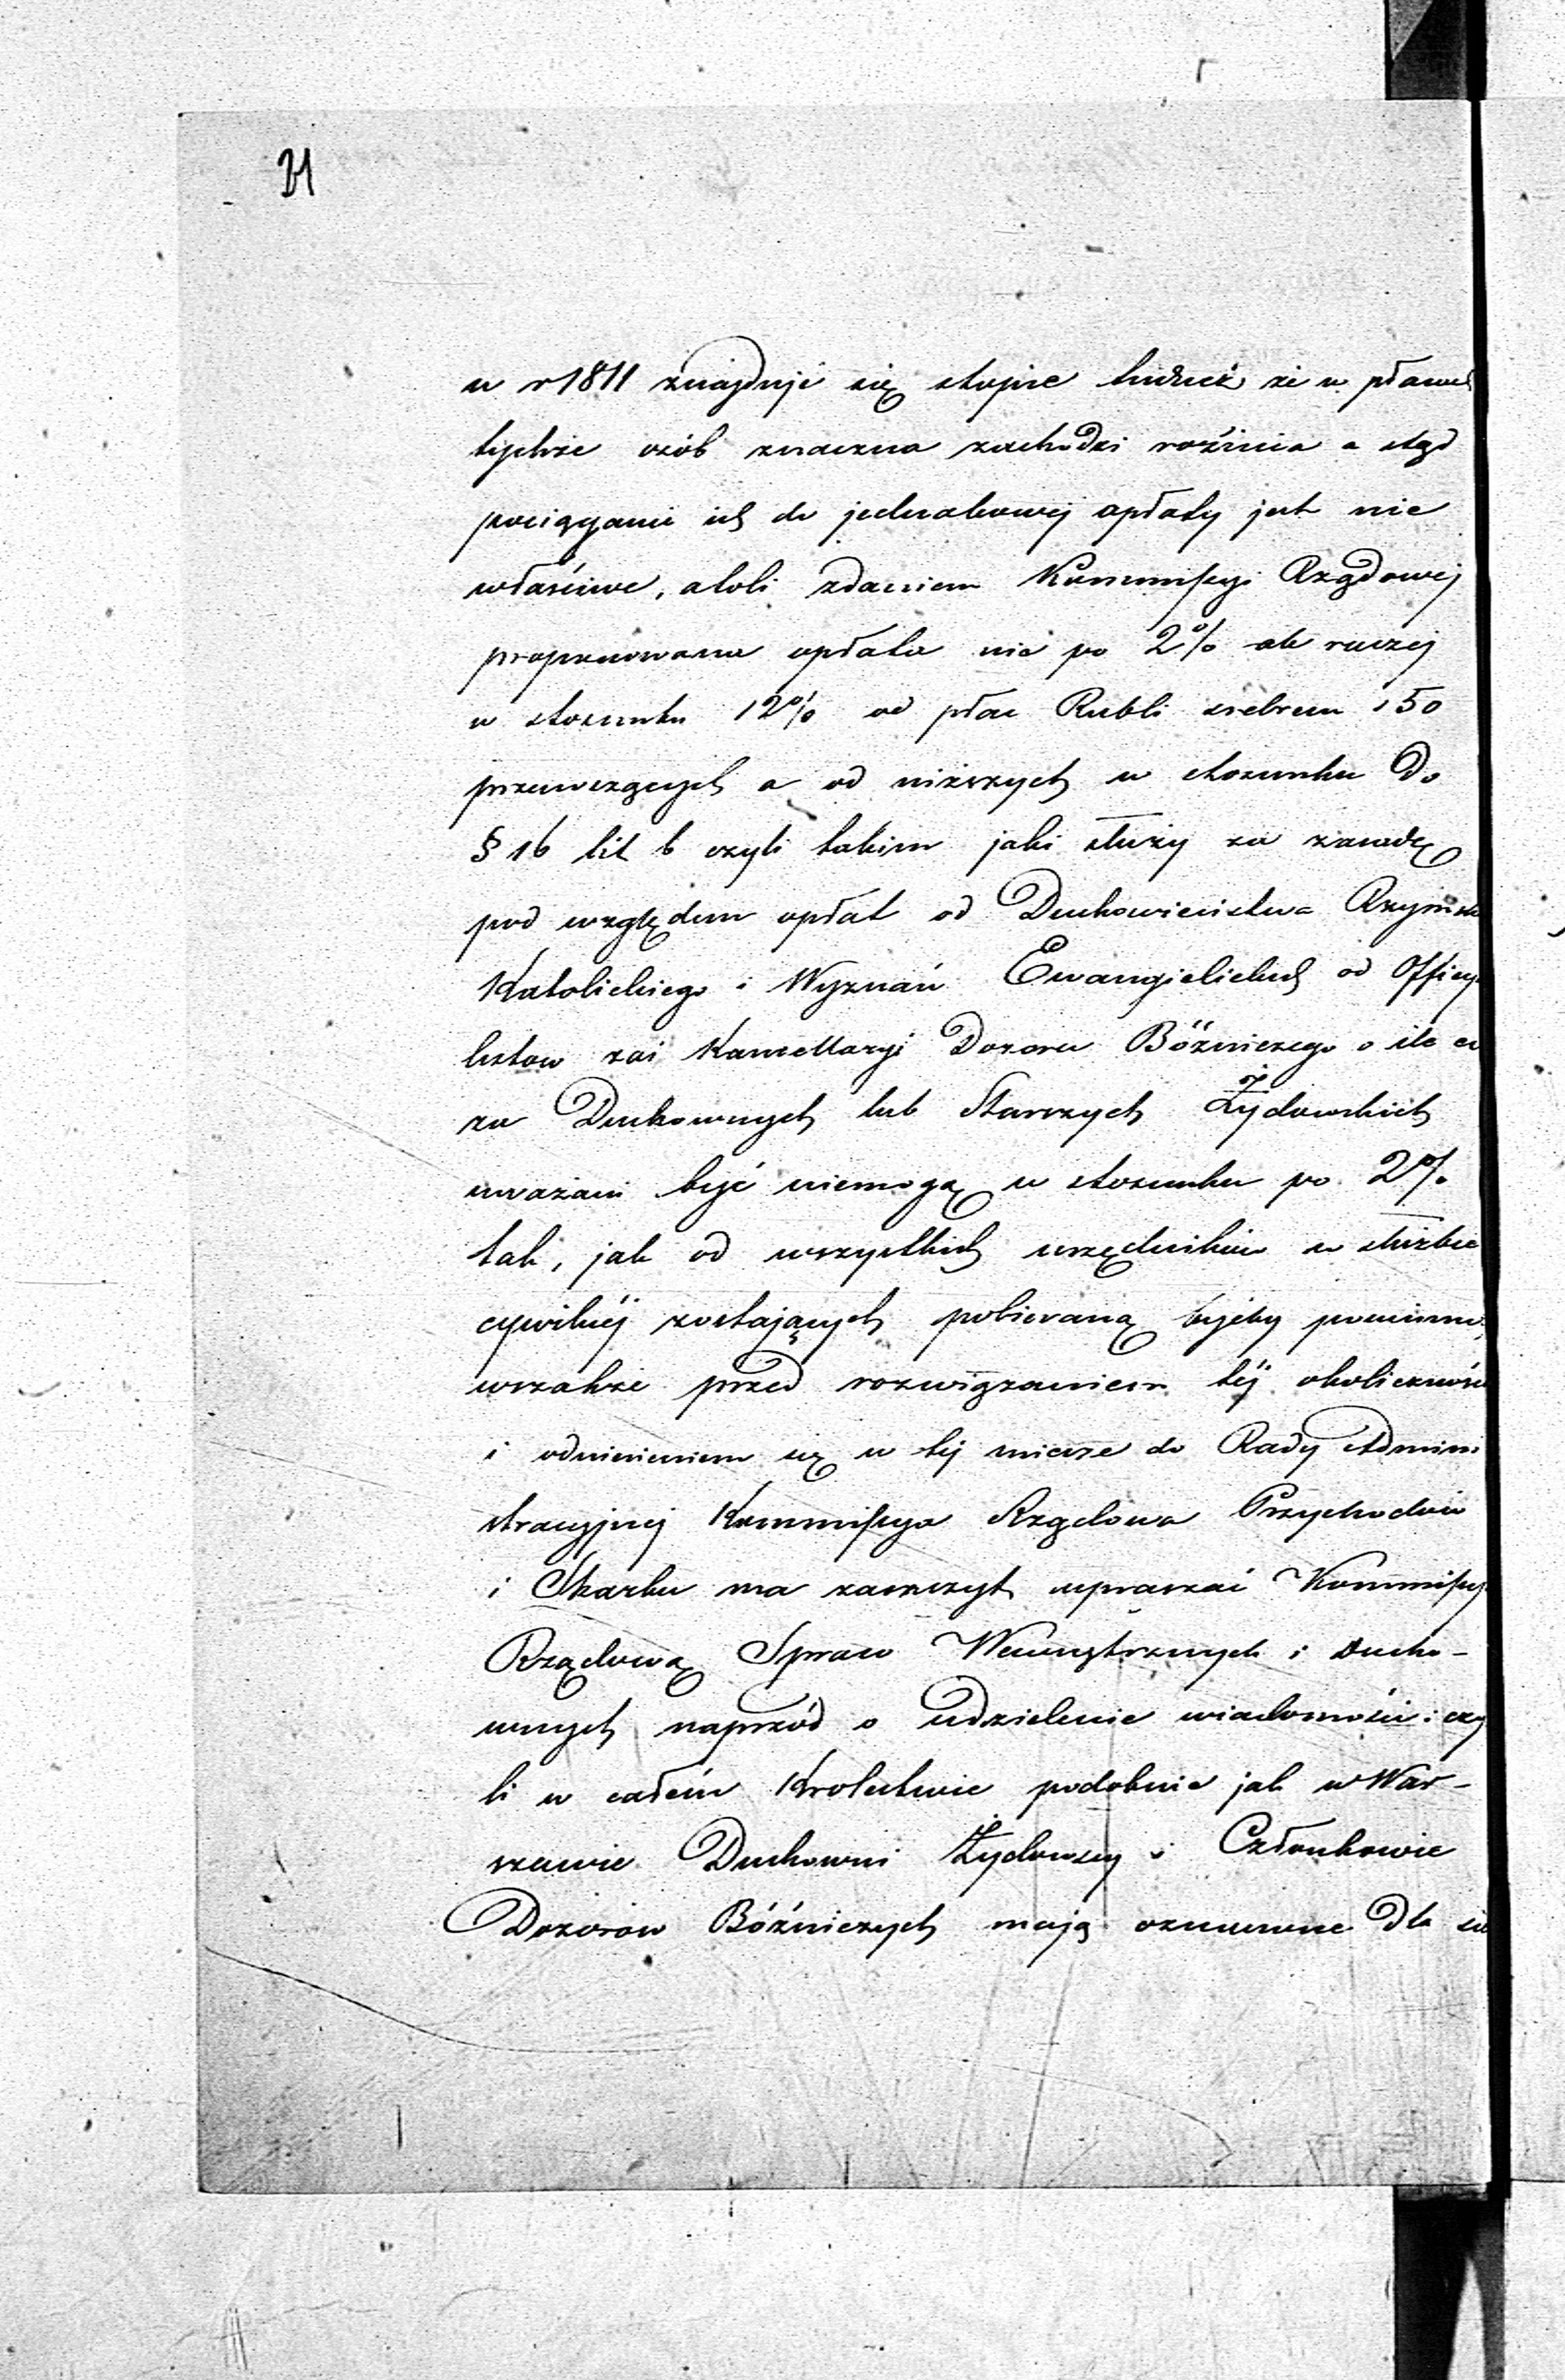 21
w r 1811 znajduje się stopie tudzież że w płacach
tychże osób znaczna zachodzi roźnica a ztąd
pociąganie ich do jednakowej opłaty jest nie
właściwe, atoli zdaniem Kommissyi Rządowej
proponowana opłata nie po 2% ale raczej
w stosunku 12% od płac Rubli srebrem 150
przenoszących a od niższych w stosunku do
§ 16 lit b czyli takim jaki służy za zasadę
pod względem opłat od Duchowieństwa Rzymsko
Katolickiego i Wyznań Ewangielickich od Officya
listow zaś Kancellaryi Dozoru Bóżniczego o ile ci
za Duchownych lub Starszych Żydowskich
uważani być niemogą w stosunku po 2%
tak, jak od wszystkich urzędników w służbie
cywilnéj zostających pobieraną byćby powinna,
wszakże przed rozwiązaniem téj okoliczności
i odniesieniem się w tej mierze do Rady Admini
stracyjnej Kommissya Rządowa Przychodów
i Skarbu ma zaszczyt upraszać Kommissyi
Rządową Spraw Wewnętrznych i Ducho-
wnych naprzód o udzielenie wiadomości: czy
li w całém Krolestwie podobnie jak w War-
szawie Duchowni Żydowscy i Członkowie
Dozorow Bóźniczych mają oznaczone dla sie